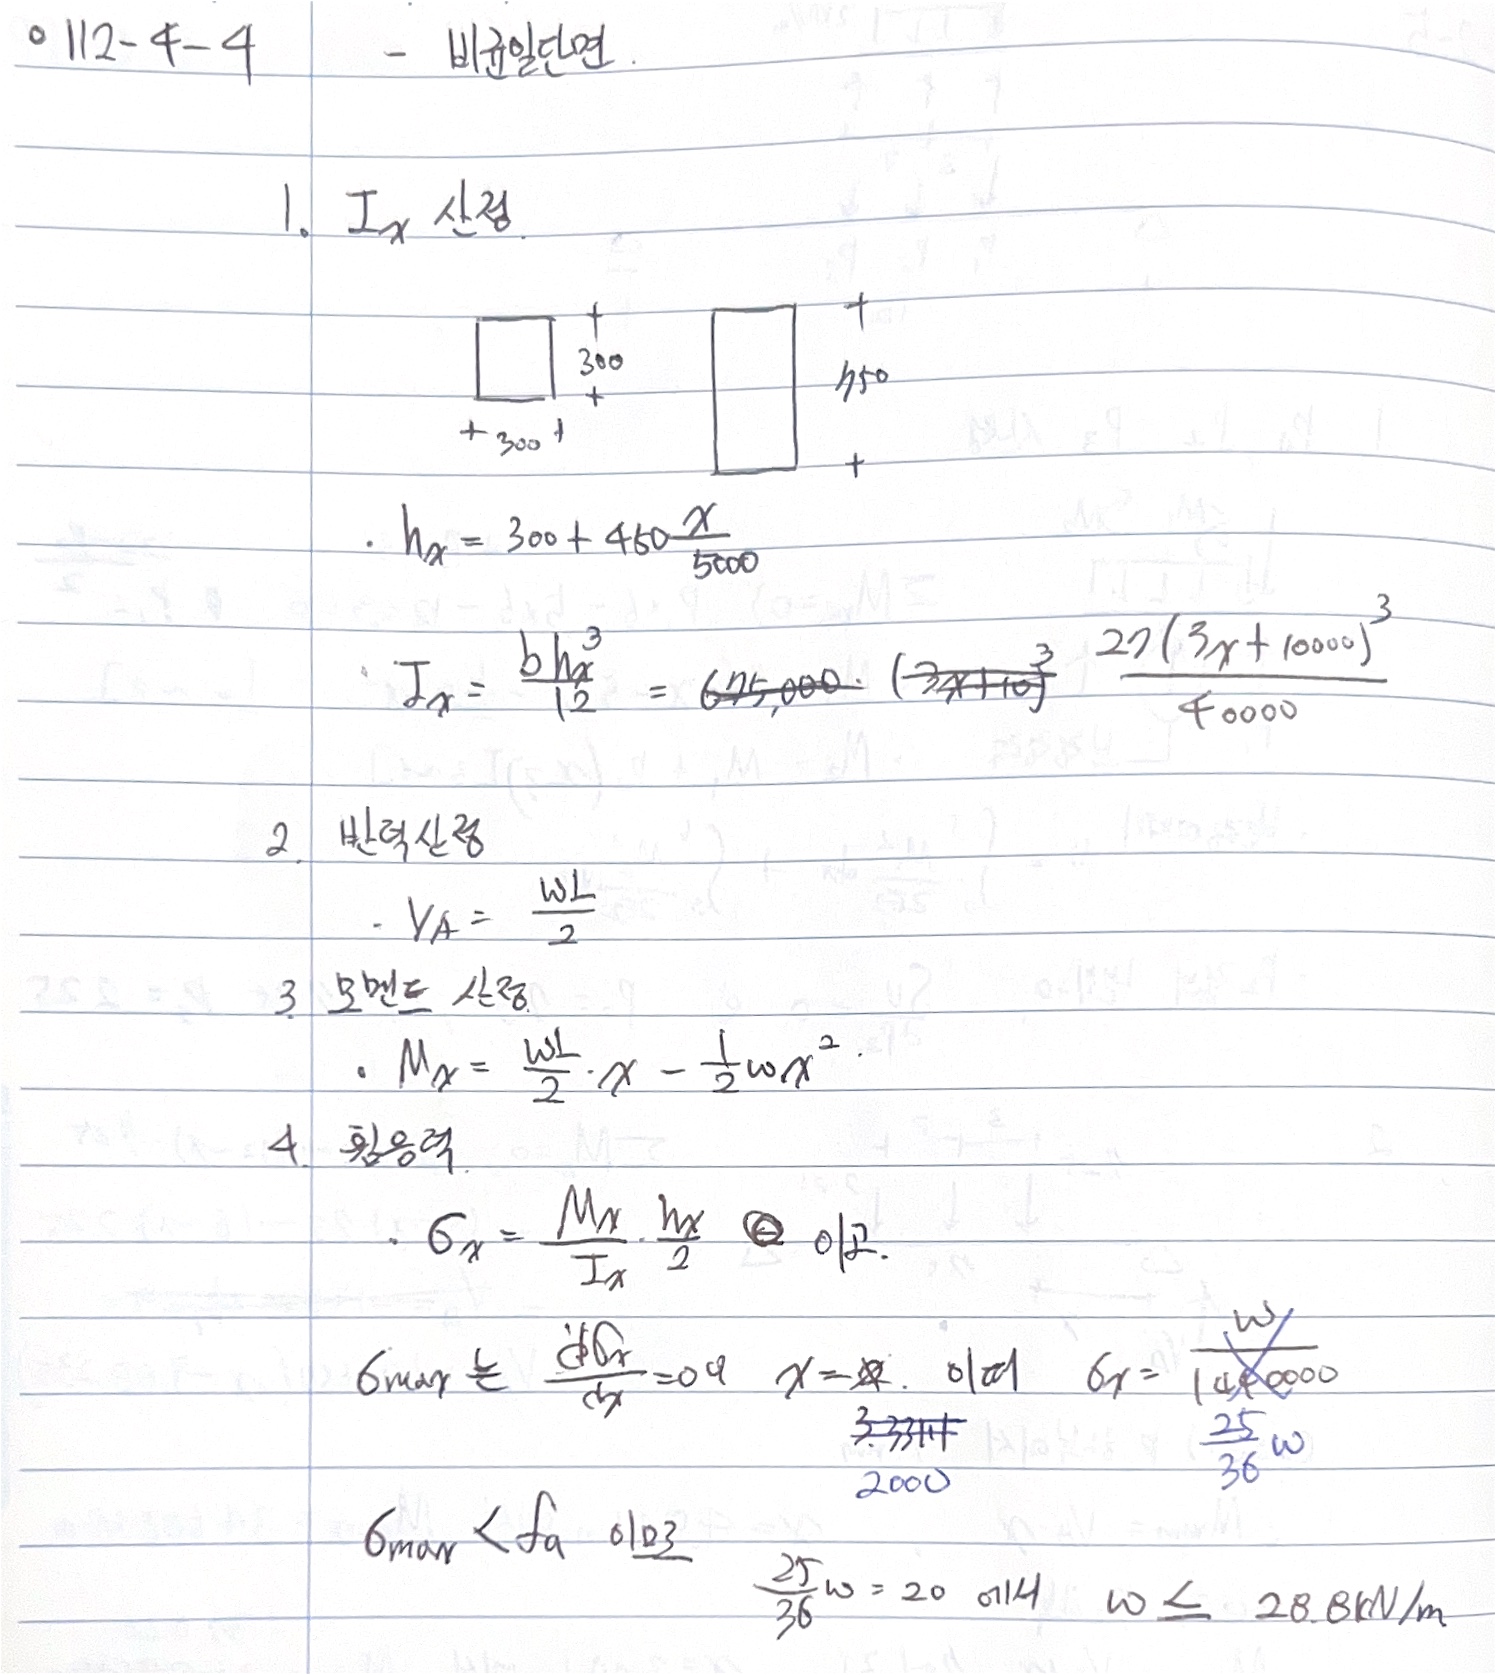 ° 112-4-4 - 비균일단면.
1. Ix 산정.
300
750
300
· hx = 300 + 450 x/5000
· Ix = bhx³/12 = 675,000 · (3x+10)³ 27(3x+10000)³/40000
2. 반력산정
· VA = wL/2
3. 모멘트 산정.
· Mx = wL/2 · x - 1/2 wx².
4. 휨응력.
· σx = Mx/Ix · hx/2 이고.
σmax 는 dσx/dx = 0인 x = 2000 이며 σx = w/1440000
3.33
25/36 w
σmax < fa 이므로
25/36 w = 20 에서 w ≤ 28.8kN/m